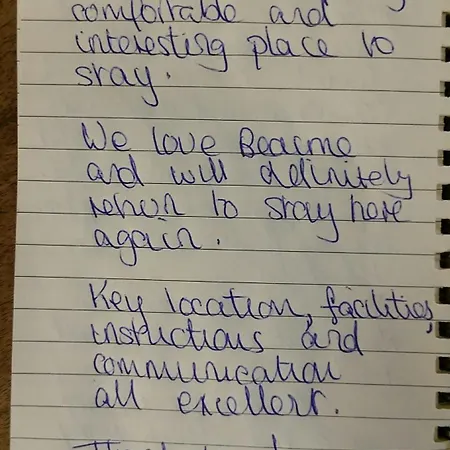 comfortable and
interesting place to
stay.
We love Beaune
and will definitely
return to stay here
again.
Key location, facilities,
instructions and
communication
all excellent.